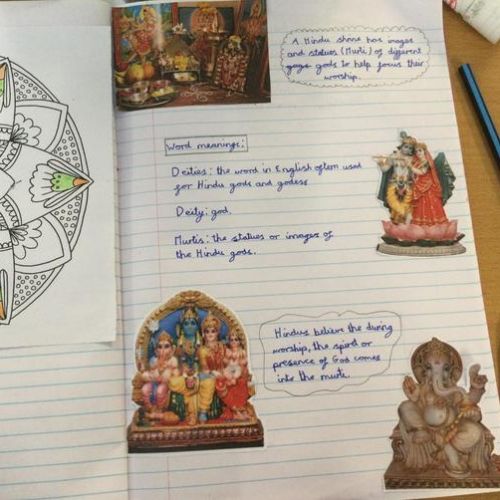 A Hindu shrine has images
and statues (Murti) of different
gods to help focus their
worship.
Word meanings:
Deities: the word in English often used
for Hindu gods and godess
Deity: god.
Murtis: the statues or images of
the Hindu gods.
Hindus believe the during
worship, the spirit or
presence of God comes
into the murti.